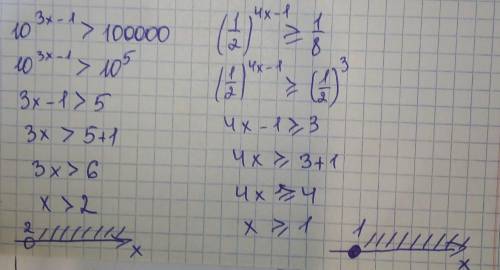 10^(3x-1) > 100000
10^(3x-1) > 10^5
3x-1 > 5
3x > 5+1
3x > 6
x > 2
2
x
(1/2)^(4x-1) ≥ 1/8
(1/2)^(4x-1) ≥ (1/2)^3
4x-1 ≥ 3
4x ≥ 3+1
4x ≥ 4
x ≥ 1
1
x